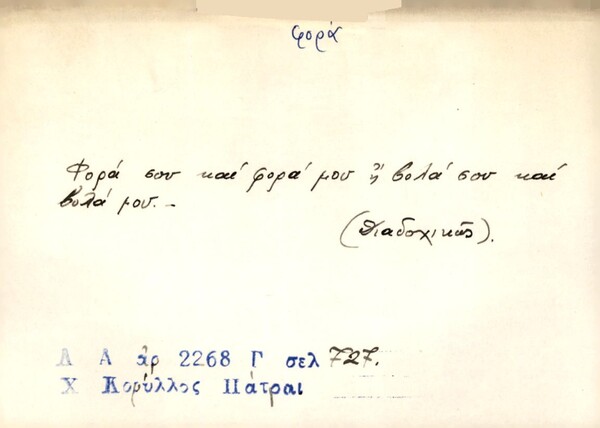 φορά
Φορά σου καί φορά μου ἤ βολά σου καί
βολά μου.-
(Διαδοχικῶς).
Λ Α ἀρ 2268 Γ σελ 727.
Χ Κορύλλος Πάτραι